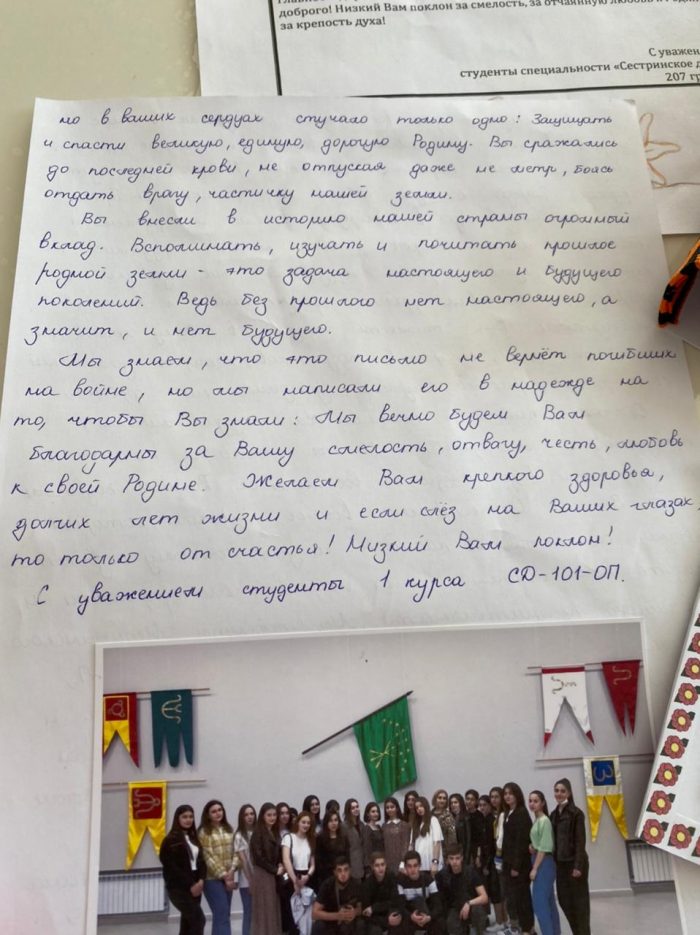 доброго! Низкий Вам поклон за смелость, за отчаянную любовь к
за крепость духа!
С уважен
студенты специальности «Сестринское д
207 гр
но в ваших сердцах стучало только одно: Защищать
и спасти великую, единую, дорогую Родину. Вы сражались
до последней крови, не отпуская даже не метр, боясь
отдать врагу, частичку нашей земли.
Вы внесли в историю нашей страны огромный
вклад. Вспоминать, изучать и почитать прошлое
родной земли - это задача настоящего и будущего
поколений. Ведь без прошлого нет настоящего, а
значит, и нет будущего.
Мы знаем, что это письмо не вернёт погибших
на войне, но мы написали его в надежде на
то, чтобы Вы знали: Мы вечно будем Вам
благодарны за Вашу смелость, отвагу, честь, любовь
к своей Родине. Желаем Вам крепкого здоровья,
долгих лет жизни и если слёз на Ваших глазах,
то только от счастья! Низкий Вам поклон!
С уважением студенты 1 курса СД-101-ОП.